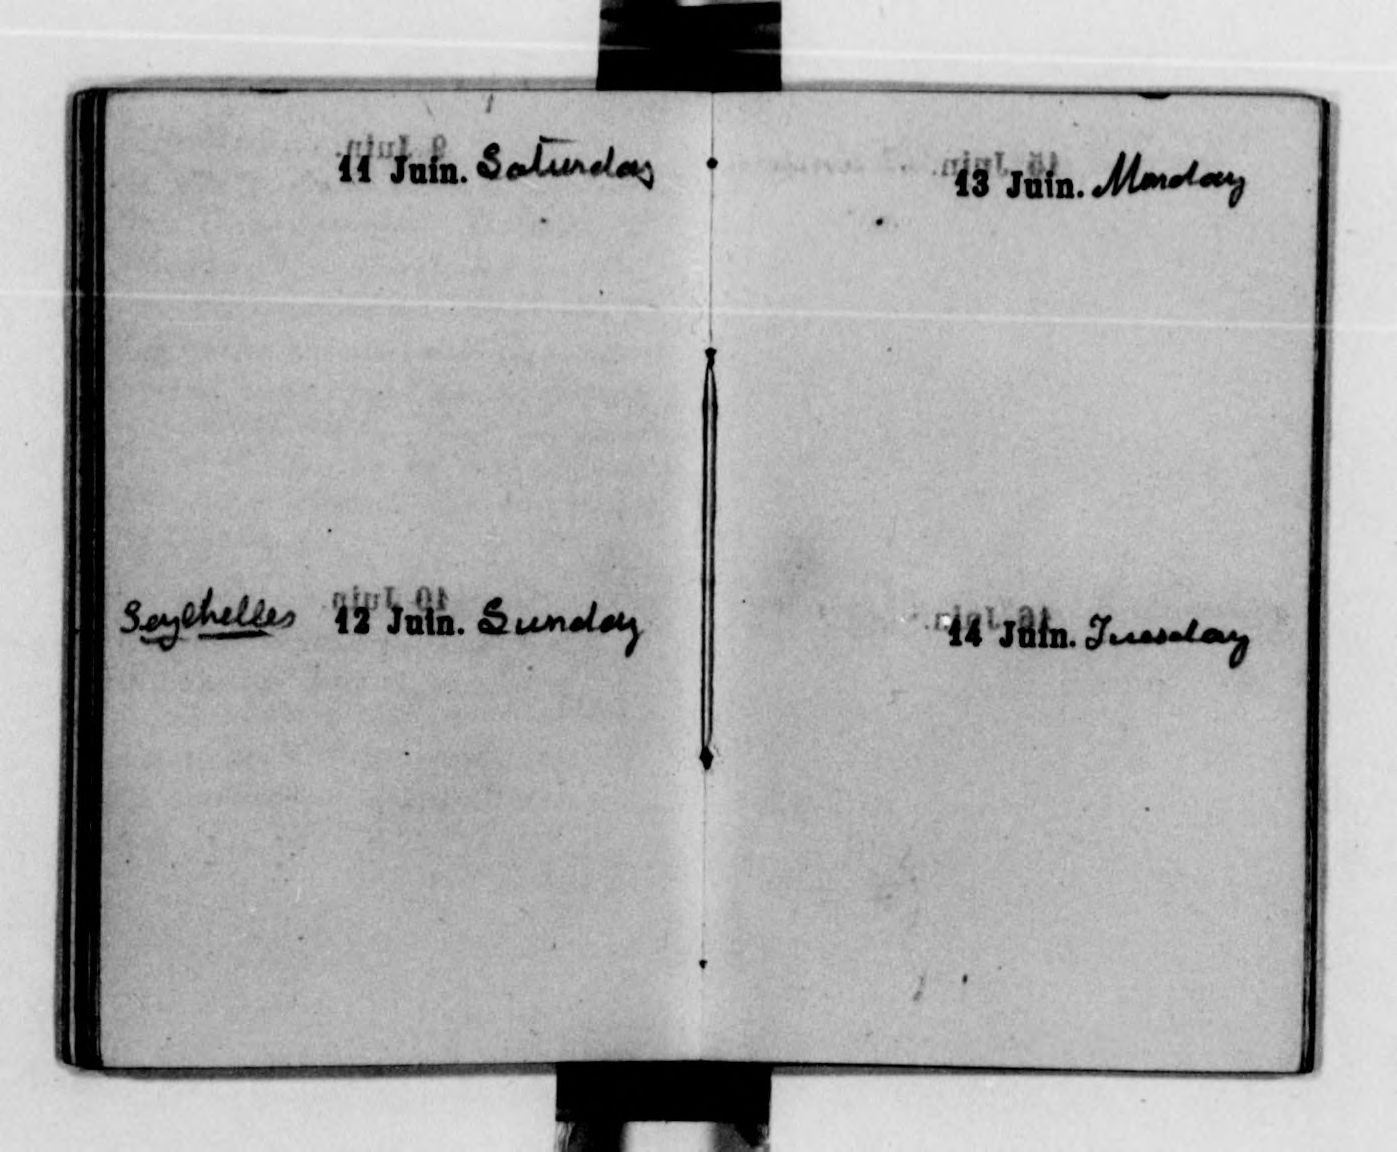 11 Juin. Saturday
Seychelles 12 Juin. Sunday
13 Juin. Monday
14 Juin. Tuesday